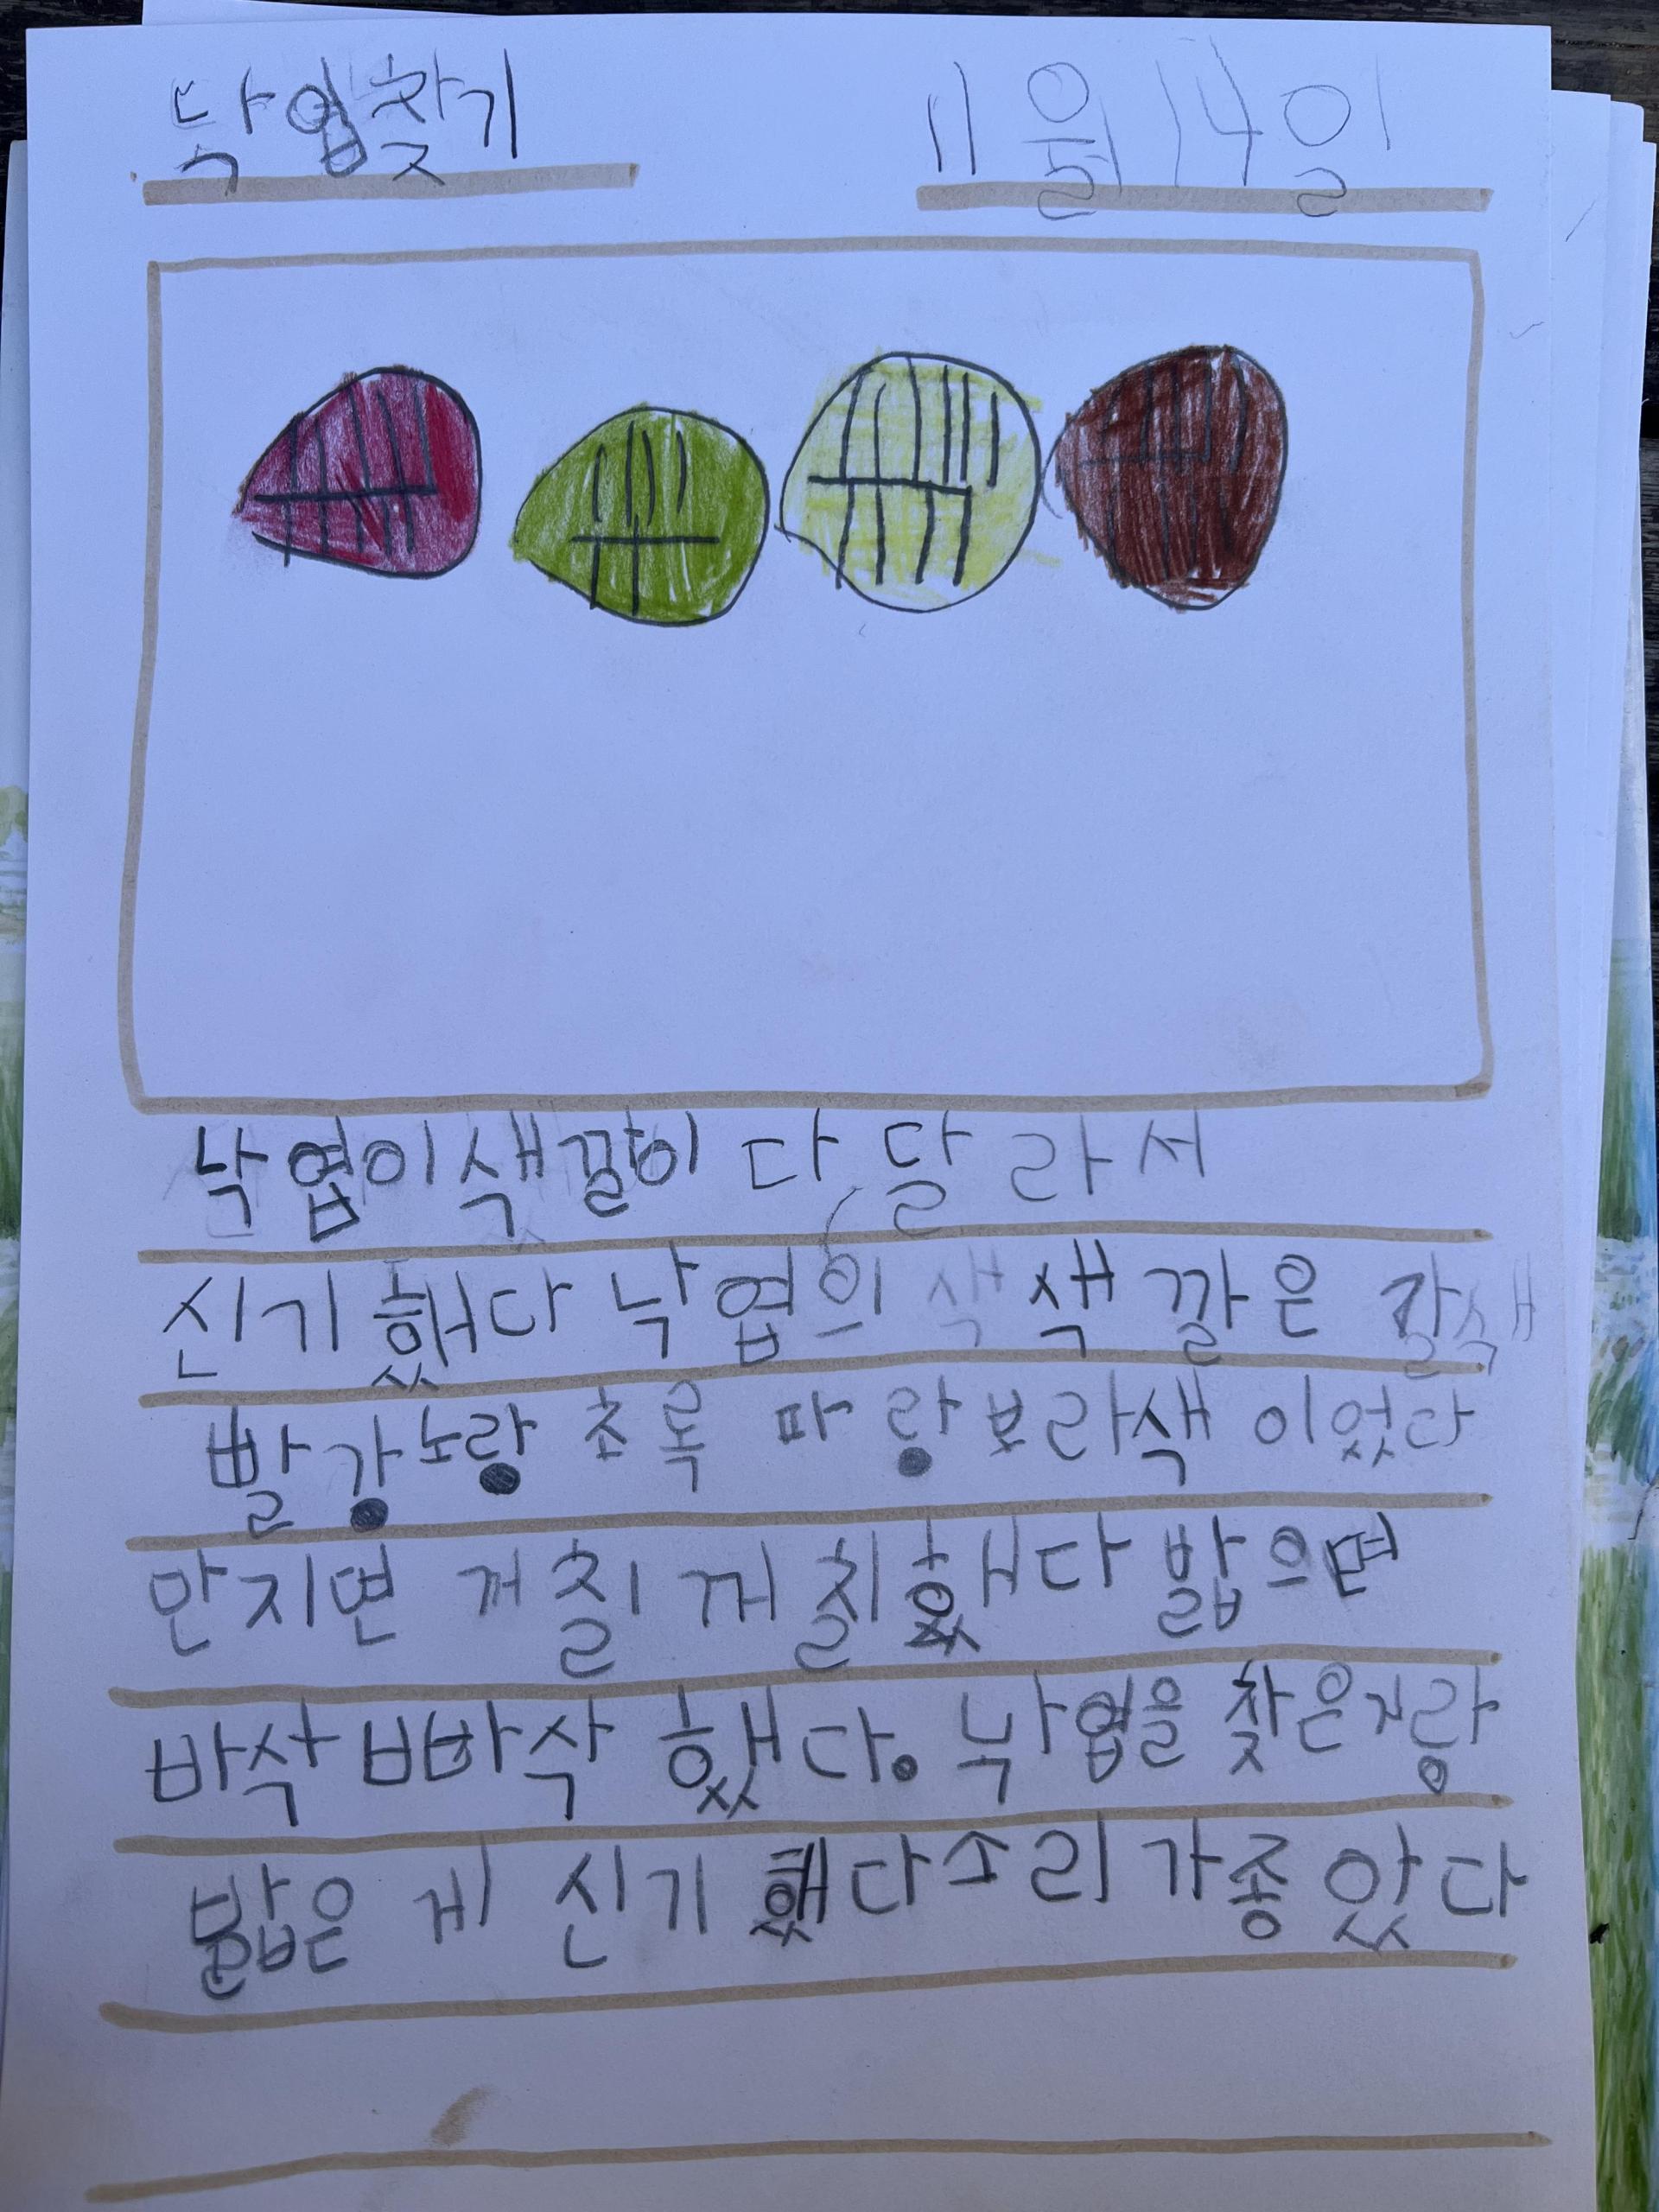 낙엽찾기
11월14일
낙엽이 색깔이 다 달라서
신기했다 낙엽의 색 색깔은 갈색
빨강 노랑 초록 파랑 보라색 이었다
만지면 꺼칠 꺼칠했다 밟으면
바삭 빠삭 했다. 낙엽을 찾은거랑
밟은 게 신기했다 소리가 좋았다